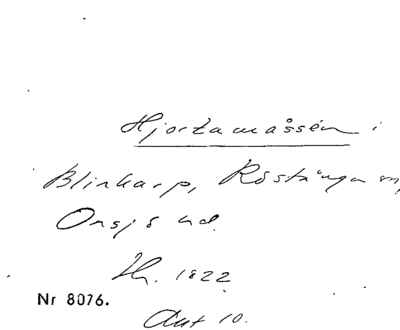 Hjortamåssen i
Blinkarp, Röstånga sn,
Onsjö hd.
Th. 1822
Nr 8076.
Akt 10.